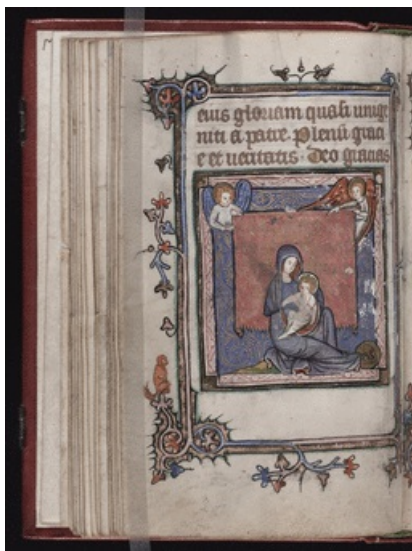 eius gloriam quasi unige
niti a patre. Plenū graci
e et ueritatis. Deo gracias